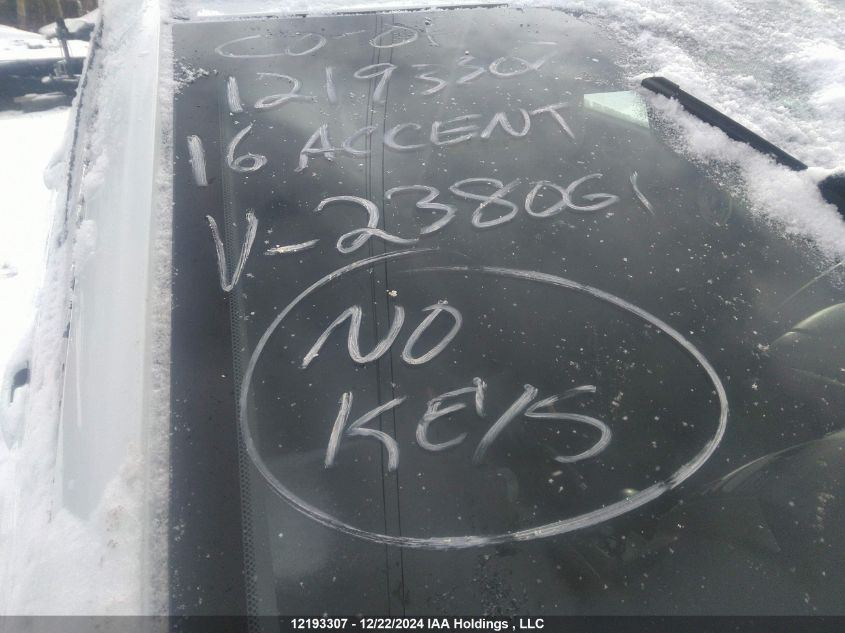 CO-OP
12193307
16 ACCENT
V-238061
NO
KEYS
12193307 - 12/22/2024 IAA Holdings , LLC